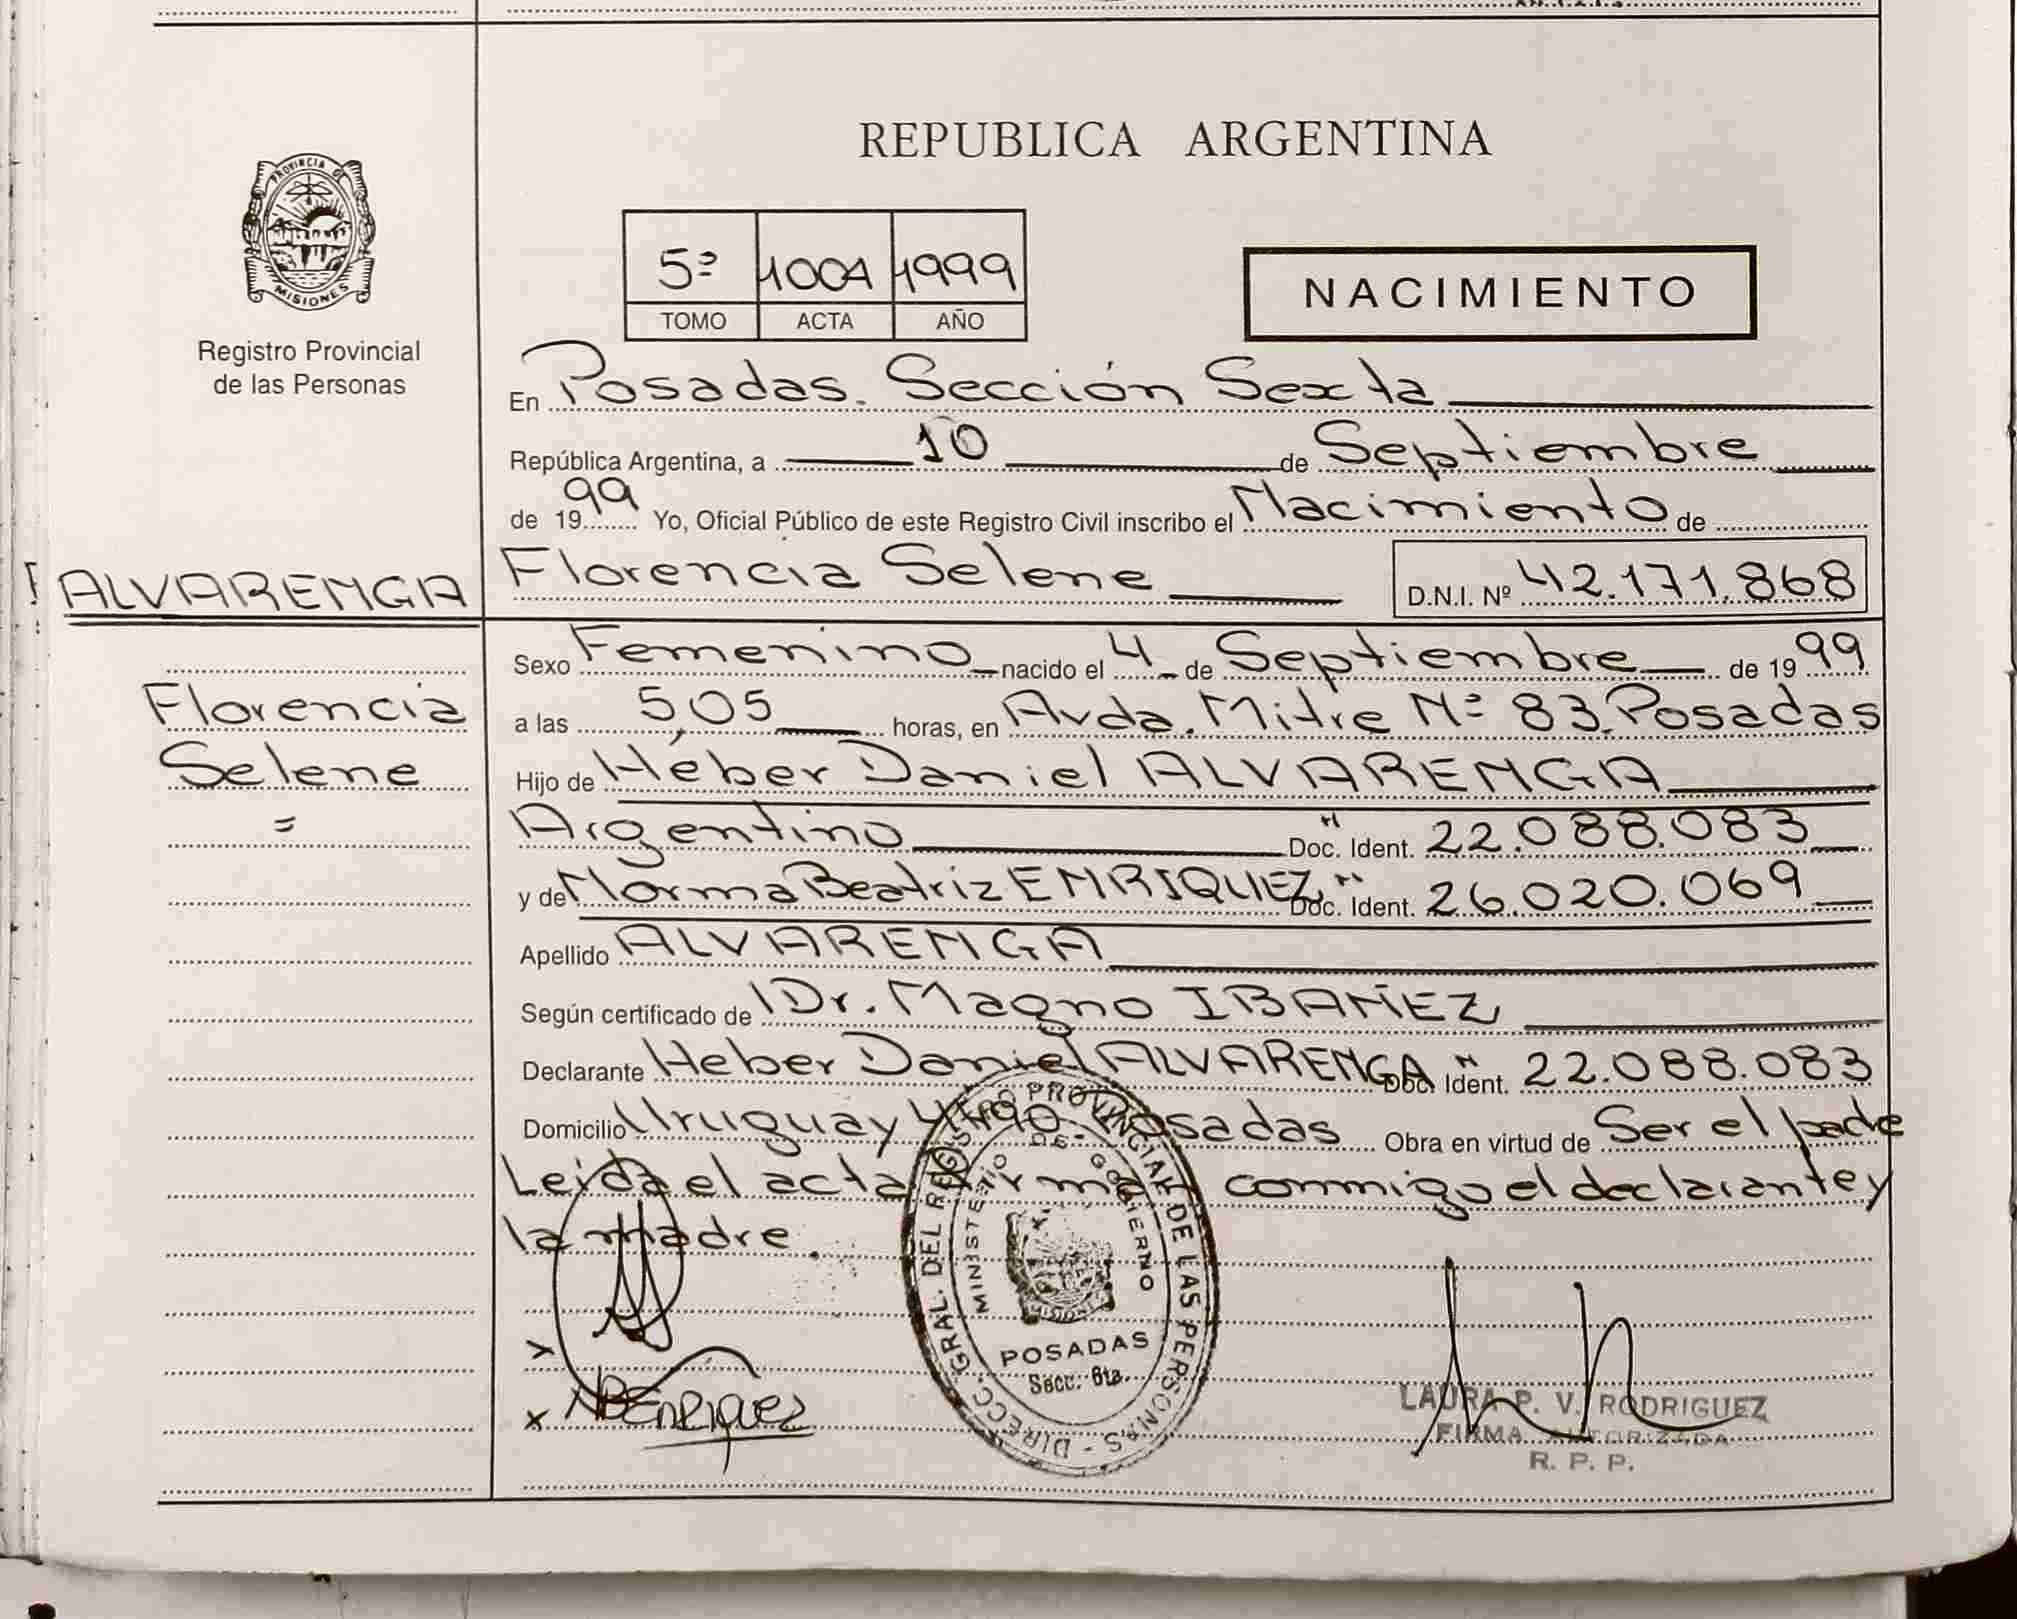 REPUBLICA ARGENTINA
PROVINCIA DE
MISIONES
Registro Provincial
de las Personas
5º 1004 1999
TOMO ACTA AÑO
NACIMIENTO
En Posadas. Sección Sexta
República Argentina, a 10 de Septiembre
de 1999 Yo, Oficial Público de este Registro Civil inscribo el Nacimiento de
ALVARENGA
Florencia Selene D.N.I. Nº 42.171.868
Florencia
Selene
=
Sexo Femenino nacido el 4 de Septiembre de 1999
a las 5,05 horas, en Avda. Mitre Nº 83. Posadas
Hijo de Héber Daniel ALVARENGA
Argentino Doc. Ident. 22.088.083
y de Norma Beatriz ENRIQUEZ Doc. Ident. 26.020.069
Apellido ALVARENGA
Según certificado de Dr. Magno IBAÑEZ
Declarante Heber Daniel ALVARENGA Doc. Ident. 22.088.083
Domicilio Uruguay Posadas Obra en virtud de Ser el padre
Leida el acta conmigo el declarante y
la madre.
DIRECC. GRAL. DEL REGISTRO PROVINCIAL DE LAS PERSONAS
MINISTERIO DE GOBIERNO
MISIONES
POSADAS
Secc. 6ta.
x NBEnriquez
LAURA P. V. RODRIGUEZ
FIRMA AUTORIZADA
R. P. P.